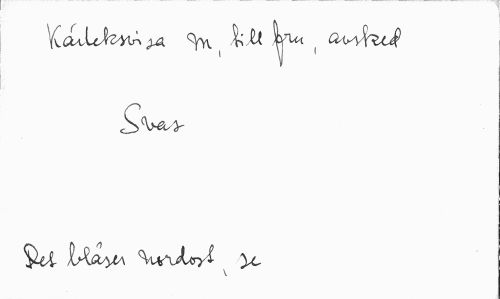 Kärleksvisa M, till fru, avsked
Svar
Det blåser nordost, se